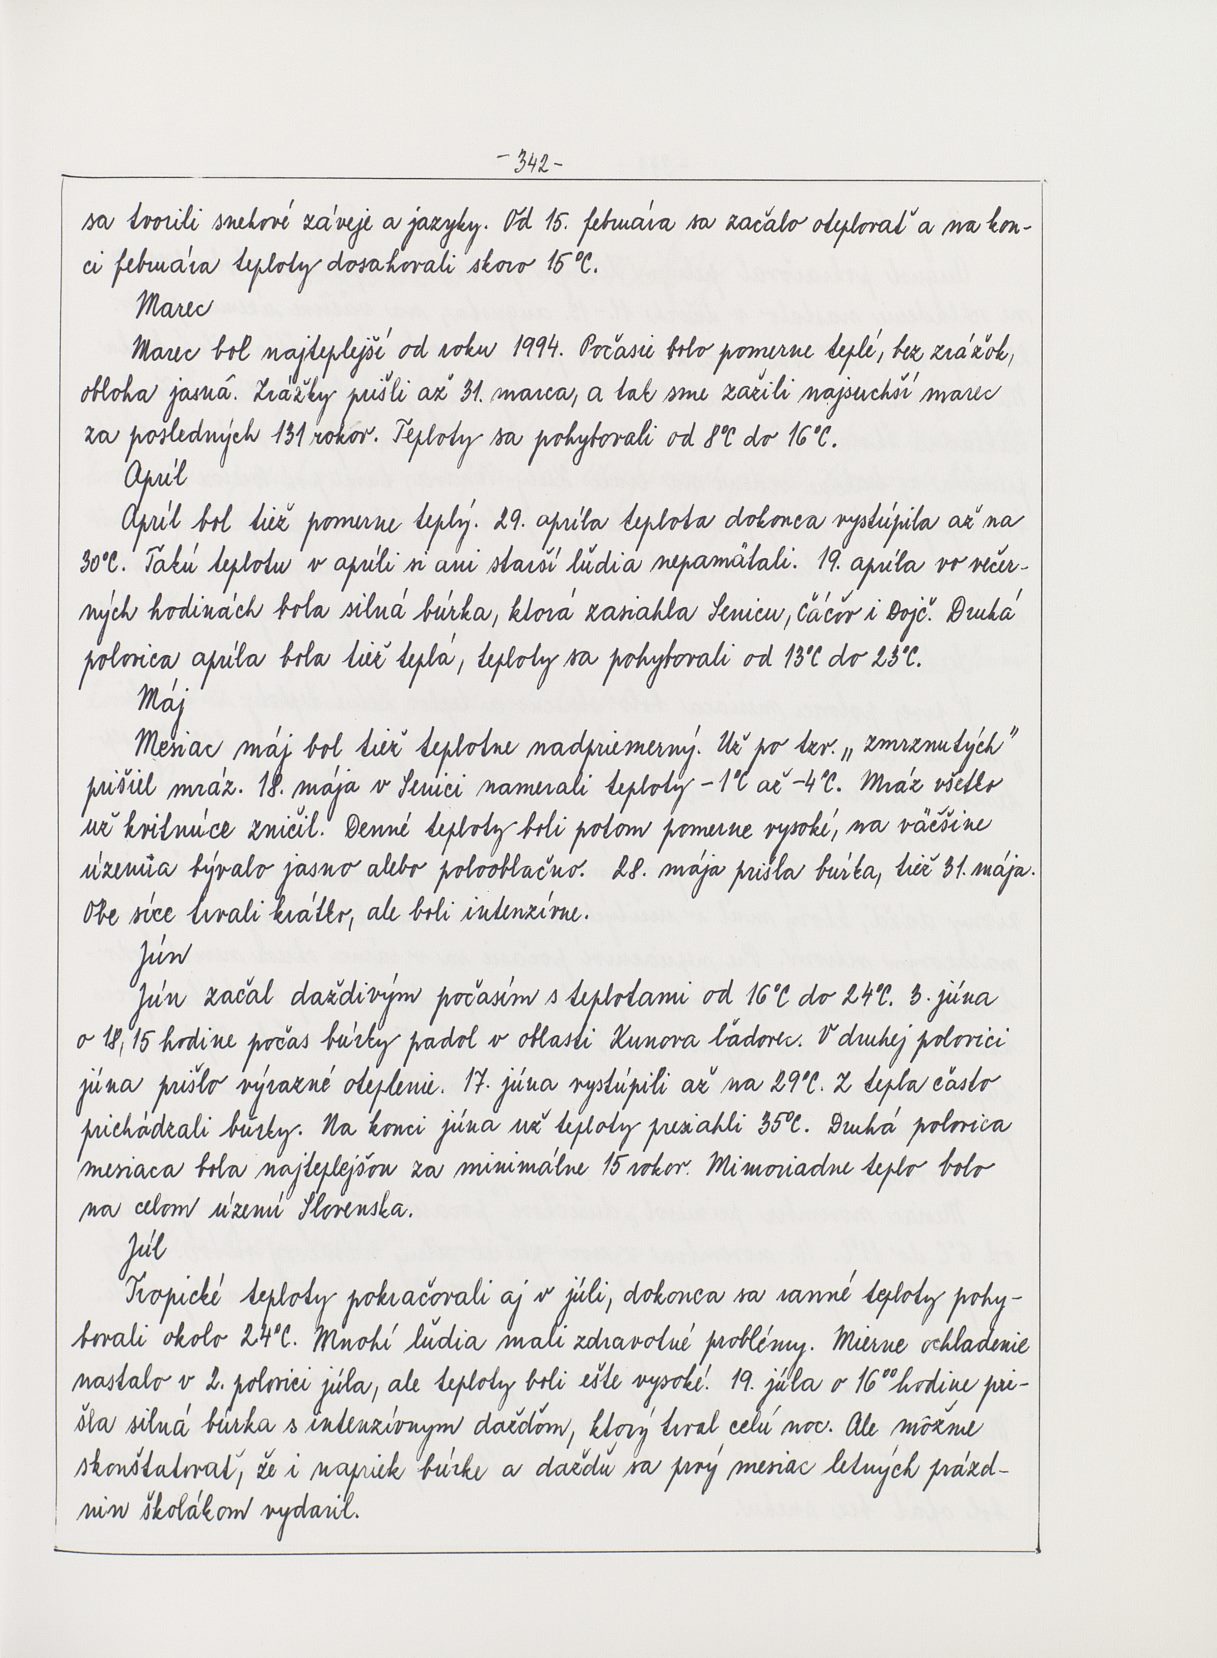 - 342 -
sa tvorili snehové záveje a jazyky. Od 15. februára sa začalo otepľovať a na kon-
ci februára teploty dosahovali skoro 15°C.
Marec
Marec bol najteplejší od roku 1994. Počasie bolo pomerne teplé, bez zrážok,
obloha jasná. Zrážky prišli až 31. marca, a tak sme zažili najsuchší marec
za posledných 131 rokov. Teploty sa pohybovali od 8°C do 16°C.
Apríl
Apríl bol tiež pomerne teplý. 29. apríla teplota dokonca vystúpila až na
30°C. Takú teplotu v apríli si ani starší ľudia nepamätali. 19. apríla vo večer-
ných hodinách bola silná búrka, ktorá zasiahla Senicu, Čáčov i Dojč. Druhá
polovica apríla bola tiež teplá, teploty sa pohybovali od 13°C do 23°C.
Máj
Mesiac máj bol tiež teplotne nadpriemerný. Už po tzv. „zmrznutých"
prišiel mráz. 18. mája v Senici namerali teploty -1°C až -4°C. Mráz všetko
už kvitnúce zničil. Denné teploty boli potom pomerne vysoké, na väčšine
územia bývalo jasno alebo polooblačno. 28. mája prišla búrka, tiež 31. mája.
Obe síce trvali krátko, ale boli intenzívne.
Jún
Jún začal daždivým počasím s teplotami od 16°C do 24°C. 3. júna
o 18,15 hodine počas búrky padol v oblasti Kunova ľadovec. V druhej polovici
júna prišlo výrazné oteplenie. 17. júna vystúpili až na 29°C. Z tepla často
prichádzali búrky. Na konci júna už teploty presiahli 35°C. Druhá polovica
mesiaca bola najteplejšou za minimálne 15 rokov. Mimoriadne teplo bolo
na celom území Slovenska.
Júl
Tropické teploty pokračovali aj v júli, dokonca sa ranné teploty pohy-
bovali okolo 24°C. Mnohí ľudia mali zdravotné problémy. Mierne ochladenie
nastalo v 2. polovici júla, ale teploty boli ešte vysoké. 19. júla o 16⁰⁰ hodine pri-
šla silná búrka s intenzívnym dažďom, ktorý trval celú noc. Ale môžme
skonštatovať, že i napriek búrke a dažďu sa prvý mesiac letných prázd-
nin školákom vydaril.